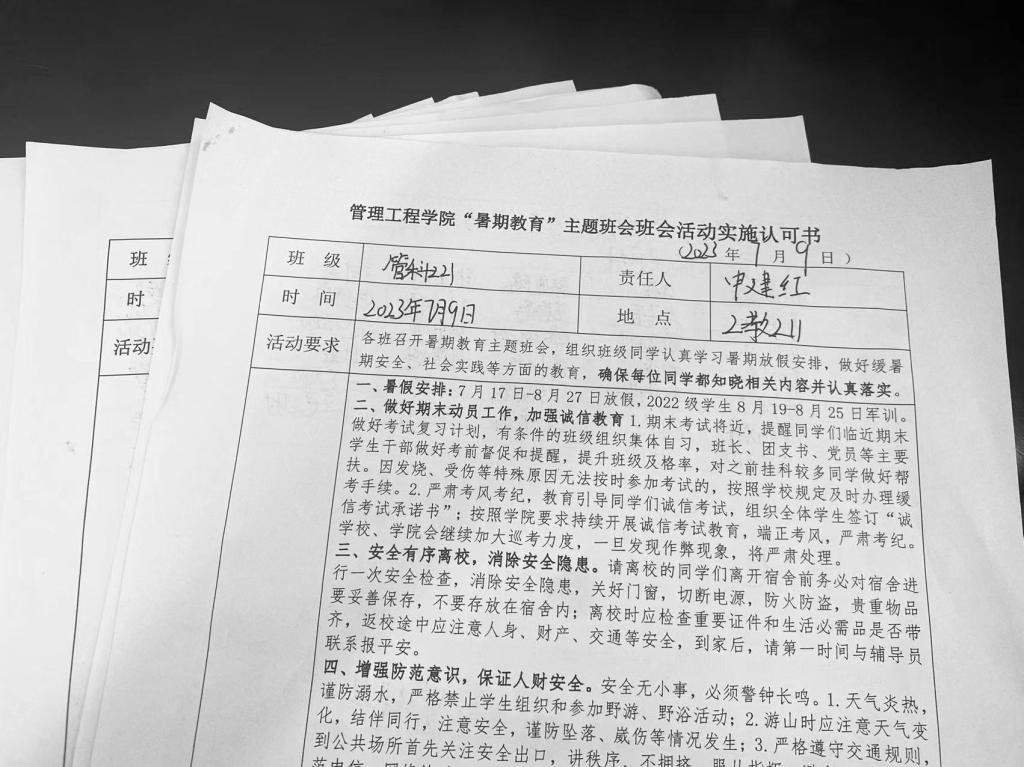 管理工程学院“暑期教育”主题班会班会活动实施认可书
（2023年7月9日）
班 级 管科221 责任人 申建红
时 间 2023年7月9日 地 点 2教211
活动要求 各班召开暑期教育主题班会，组织班级同学认真学习暑期放假安排，做好缓暑
期安全、社会实践等方面的教育，确保每位同学都知晓相关内容并认真落实。
一、暑假安排：7月17日-8月27日放假，2022级学生8月19-8月25日军训。
二、做好期末动员工作，加强诚信教育1.期末考试将近，提醒同学们临近期末
做好考试复习计划，有条件的班级组织集体自习，班长、团支书、党员等主要
学生干部做好考前督促和提醒，提升班级及格率，对之前挂科较多同学做好帮
扶。因发烧、受伤等特殊原因无法按时参加考试的，按照学校规定及时办理缓
考手续。2.严肃考风考纪，教育引导同学们诚信考试，组织全体学生签订“诚
信考试承诺书”；按照学院要求持续开展诚信考试教育，端正考风，严肃考纪。
学校、学院会继续加大巡考力度，一旦发现作弊现象，将严肃处理。
三、安全有序离校，消除安全隐患。请离校的同学们离开宿舍前务必对宿舍进
行一次安全检查，消除安全隐患，关好门窗，切断电源，防火防盗，贵重物品
要妥善保存，不要存放在宿舍内；离校时应检查重要证件和生活必需品是否带
齐，返校途中应注意人身、财产、交通等安全，到家后，请第一时间与辅导员
联系报平安。
四、增强防范意识，保证人财安全。安全无小事，必须警钟长鸣。1.天气炎热，
谨防溺水，严格禁止学生组织和参加野游、野浴活动；2.游山时应注意天气变
化，结伴同行，注意安全，谨防坠落、崴伤等情况发生；3.严格遵守交通规则，
到公共场所首先关注安全出口，讲秩序、不拥挤、服从指挥
班
时
活动